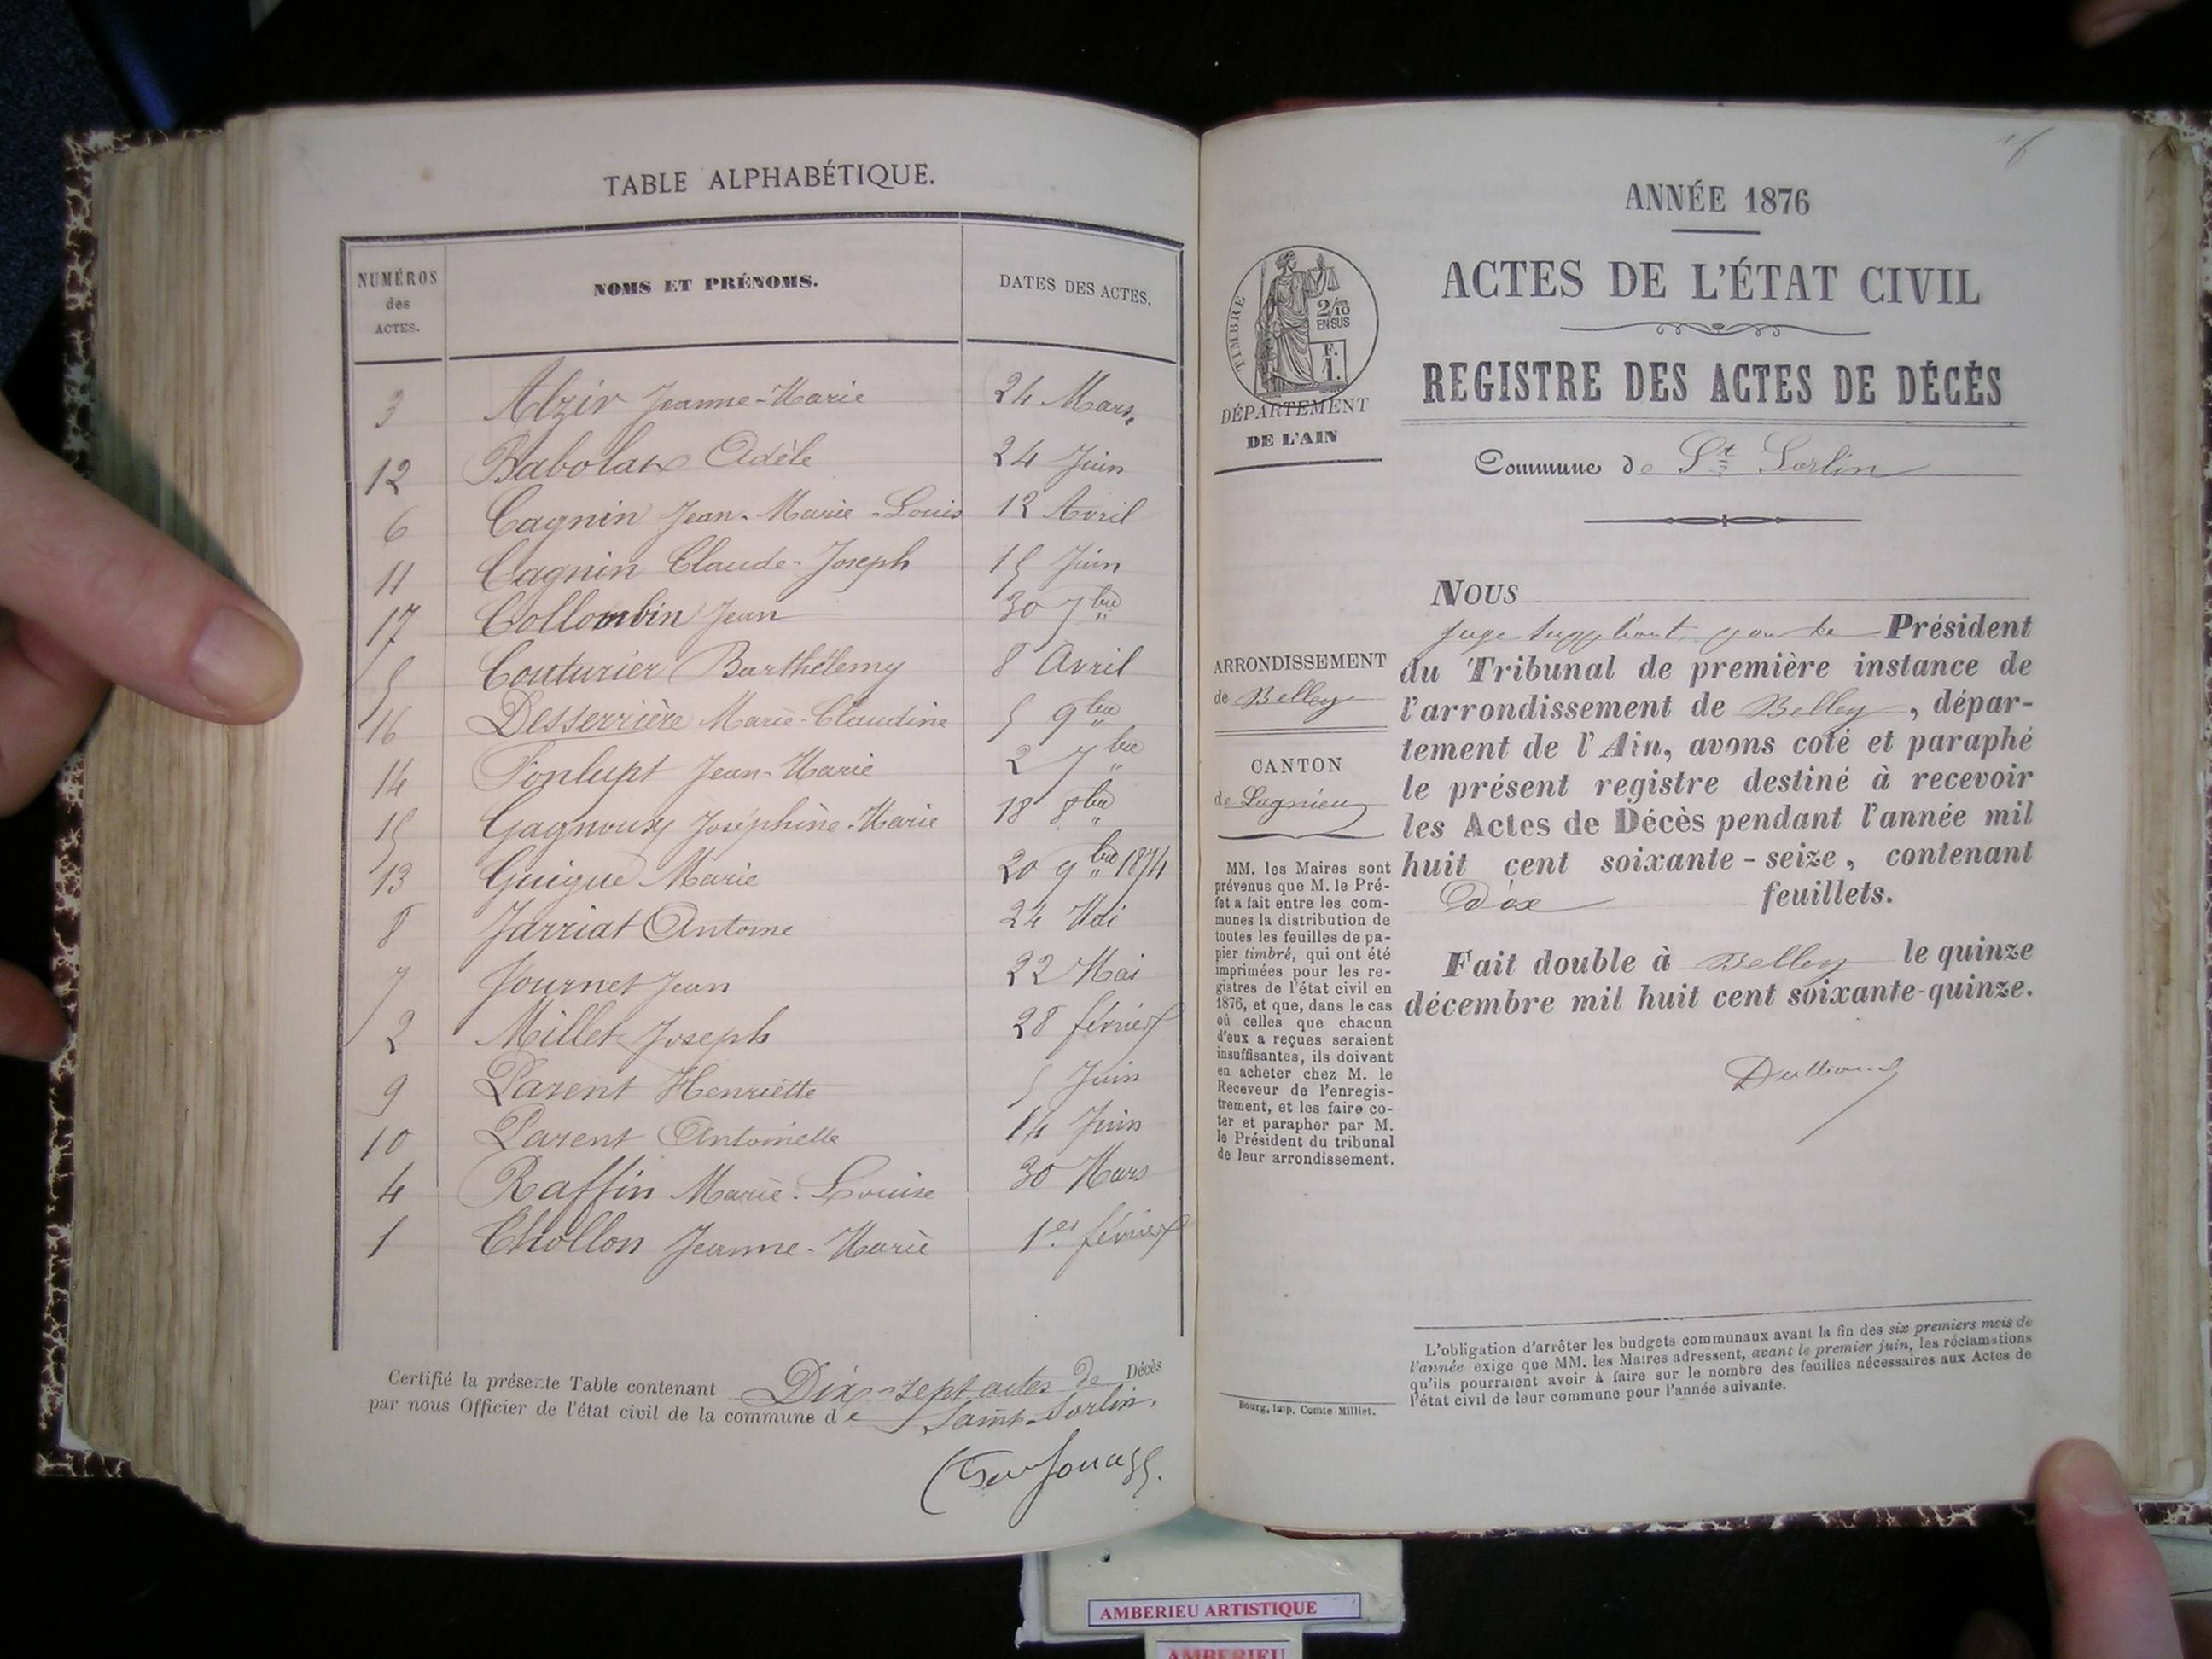 TABLE ALPHABÉTIQUE.
NUMÉROS des ACTES.
NOMS ET PRÉNOMS.
DATES DES ACTES.
3 Alzin Jeanne-Marie 24 Mars.
12 Babolat Adèle 24 Juin
6 Cagnin Jean-Marie-Louis 12 Avril
11 Cagnin Claude-Joseph 15 Juin
17 Collombin Jean 30 7bre
5 Couturier Barthélemy 8 Avril
16 Desserrière Marie-Claudine 5 9bre
14 Fonlupt Jean-Marie 2 7bre
15 Gagnoux Joséphine-Marie 18 8bre
13 Guigue Marie 20 9bre 1874
8 Jarriat Antoine 24 Mai
7 Journet Jean 22 Mai
2 Millet Joseph 28 février
9 Parent Henriette 5 Juin
10 Parent Antoinette 14 Juin
4 Raffin Marie-Louise 30 Mars
1 Chollon Jeanne-Marie 1er février
Certifié la présente Table contenant Dix-sept actes de Décès
par nous Officier de l'état civil de la commune de Saint-Sorlin.
ANNÉE 1876
ACTES DE L'ÉTAT CIVIL
REGISTRE DES ACTES DE DÉCÈS
TIMBRE
2/10
EN SUS
F.
1.
DÉPARTEMENT
DE L'AIN
Commune de St Sorlin
ARRONDISSEMENT
de Belley
CANTON
de Lagnieu
MM. les Maires sont
prévenus que M. le Pré-
fet a fait entre les com-
munes la distribution de
toutes les feuilles de pa-
pier timbré, qui ont été
imprimées pour les re-
gistres de l'état civil en
1876, et que, dans le cas
où celles que chacun
d'eux a reçues seraient
insuffisantes, ils doivent
en acheter chez M. le
Receveur de l'enregis-
trement, et les faire co-
ter et parapher par M.
le Président du tribunal
de leur arrondissement.
NOUS
juge suppléant, pour le Président
du Tribunal de première instance de
l'arrondissement de Belley, dépar-
tement de l'Ain, avons coté et paraphé
le présent registre destiné à recevoir
les Actes de Décès pendant l'année mil
huit cent soixante-seize, contenant
Dix feuillets.
Fait double à Belley le quinze
décembre mil huit cent soixante-quinze.
L'obligation d'arrêter les budgets communaux avant la fin des six premiers mois de
l'année exige que MM. les Maires adressent, avant le premier juin, les réclamations
qu'ils pourraient avoir à faire sur le nombre des feuilles nécessaires aux Actes de
l'état civil de leur commune pour l'année suivante.
Bourg, imp. Comte-Milliet.
AMBERIEU ARTISTIQUE
AMBERIEU